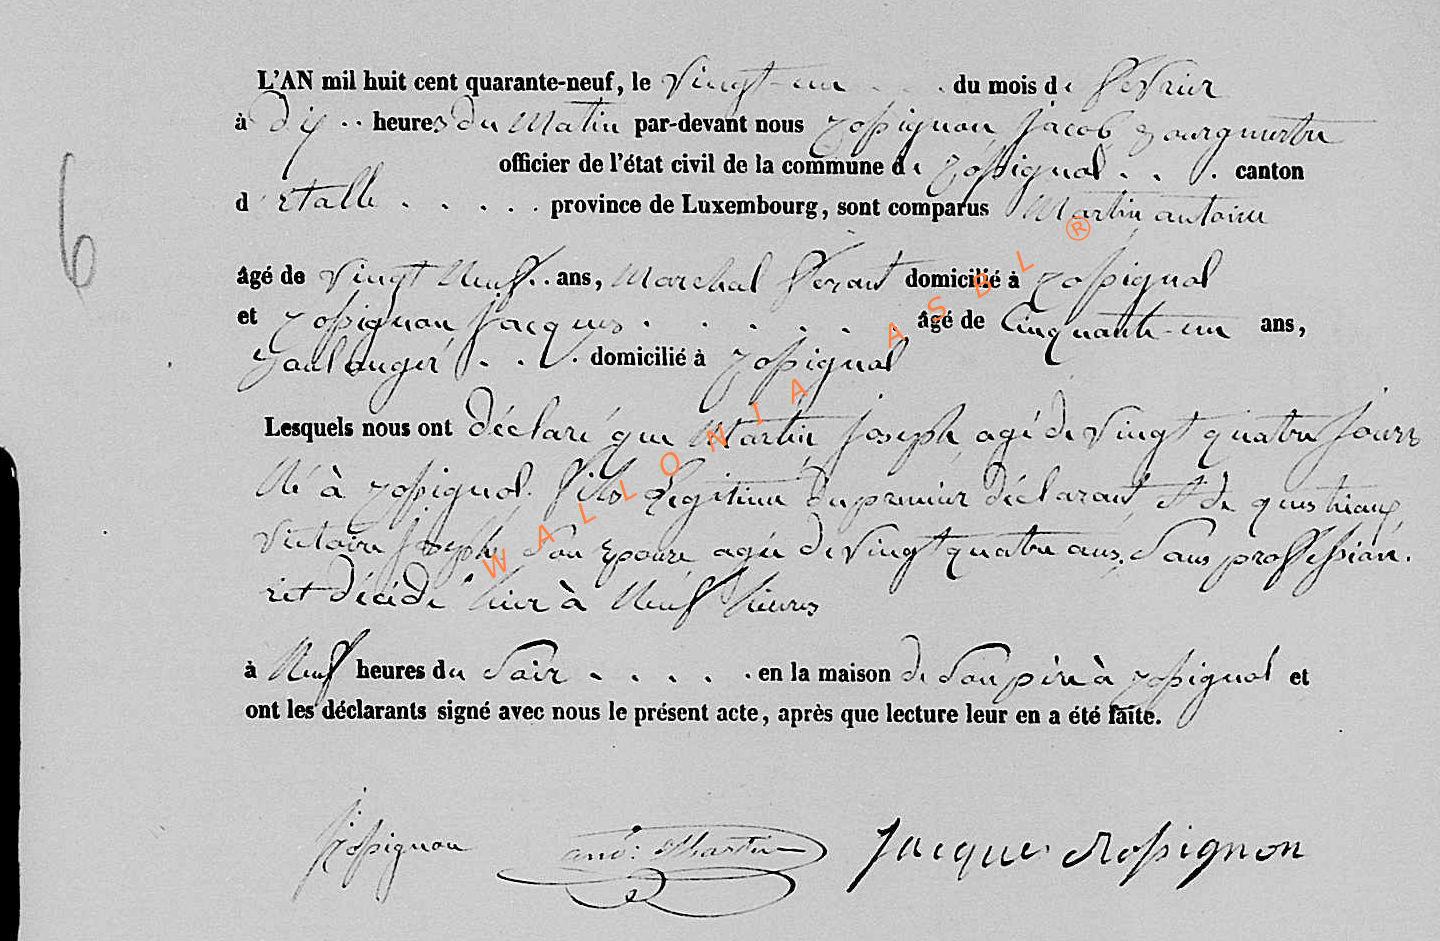 L'AN mil huit cent quarante-neuf, le vingt-un . . . du mois de fevrier
à dix .. heures du Matin par-devant nous rossignon Jacob Bourgmestre
officier de l'état civil de la commune de rossignol . . . canton
d'Etalle . . . . . province de Luxembourg, sont comparus Martin antoine
6
âgé de vingt Neuf .. ans, Marechal ferant domicilié à rossignol
et rossignon Jacques . . . . . . âgé de Cinquante-un ans,
Boulanger . . . domicilié à rossignol
Lesquels nous ont déclaré que Martin Joseph agé de vingt quatre jours
Né à rossignol. fils Légitime du premier déclarant, et de
victoire Joseph son Epouse agée de vingt quatre ans, Sans proffession.
est décédé hier à Neuf heures
à Neuf heures du Soir . . . . . en la maison de Son père à rossignol et
ont les déclarants signé avec nous le présent acte, après que lecture leur en a été faite.
rossignon ant: Martin Jacque Rossignon
WALLONIA ASBL ®